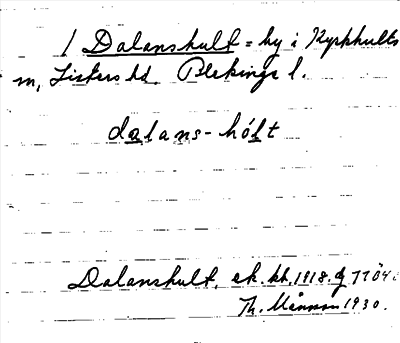 1 Dalanshult = by i Kyrkhults
m, Listers hd. Blekinge l.
dalans-hólt
Dalanshult, ek. kb. 1918.
Th. Månsson 1930.